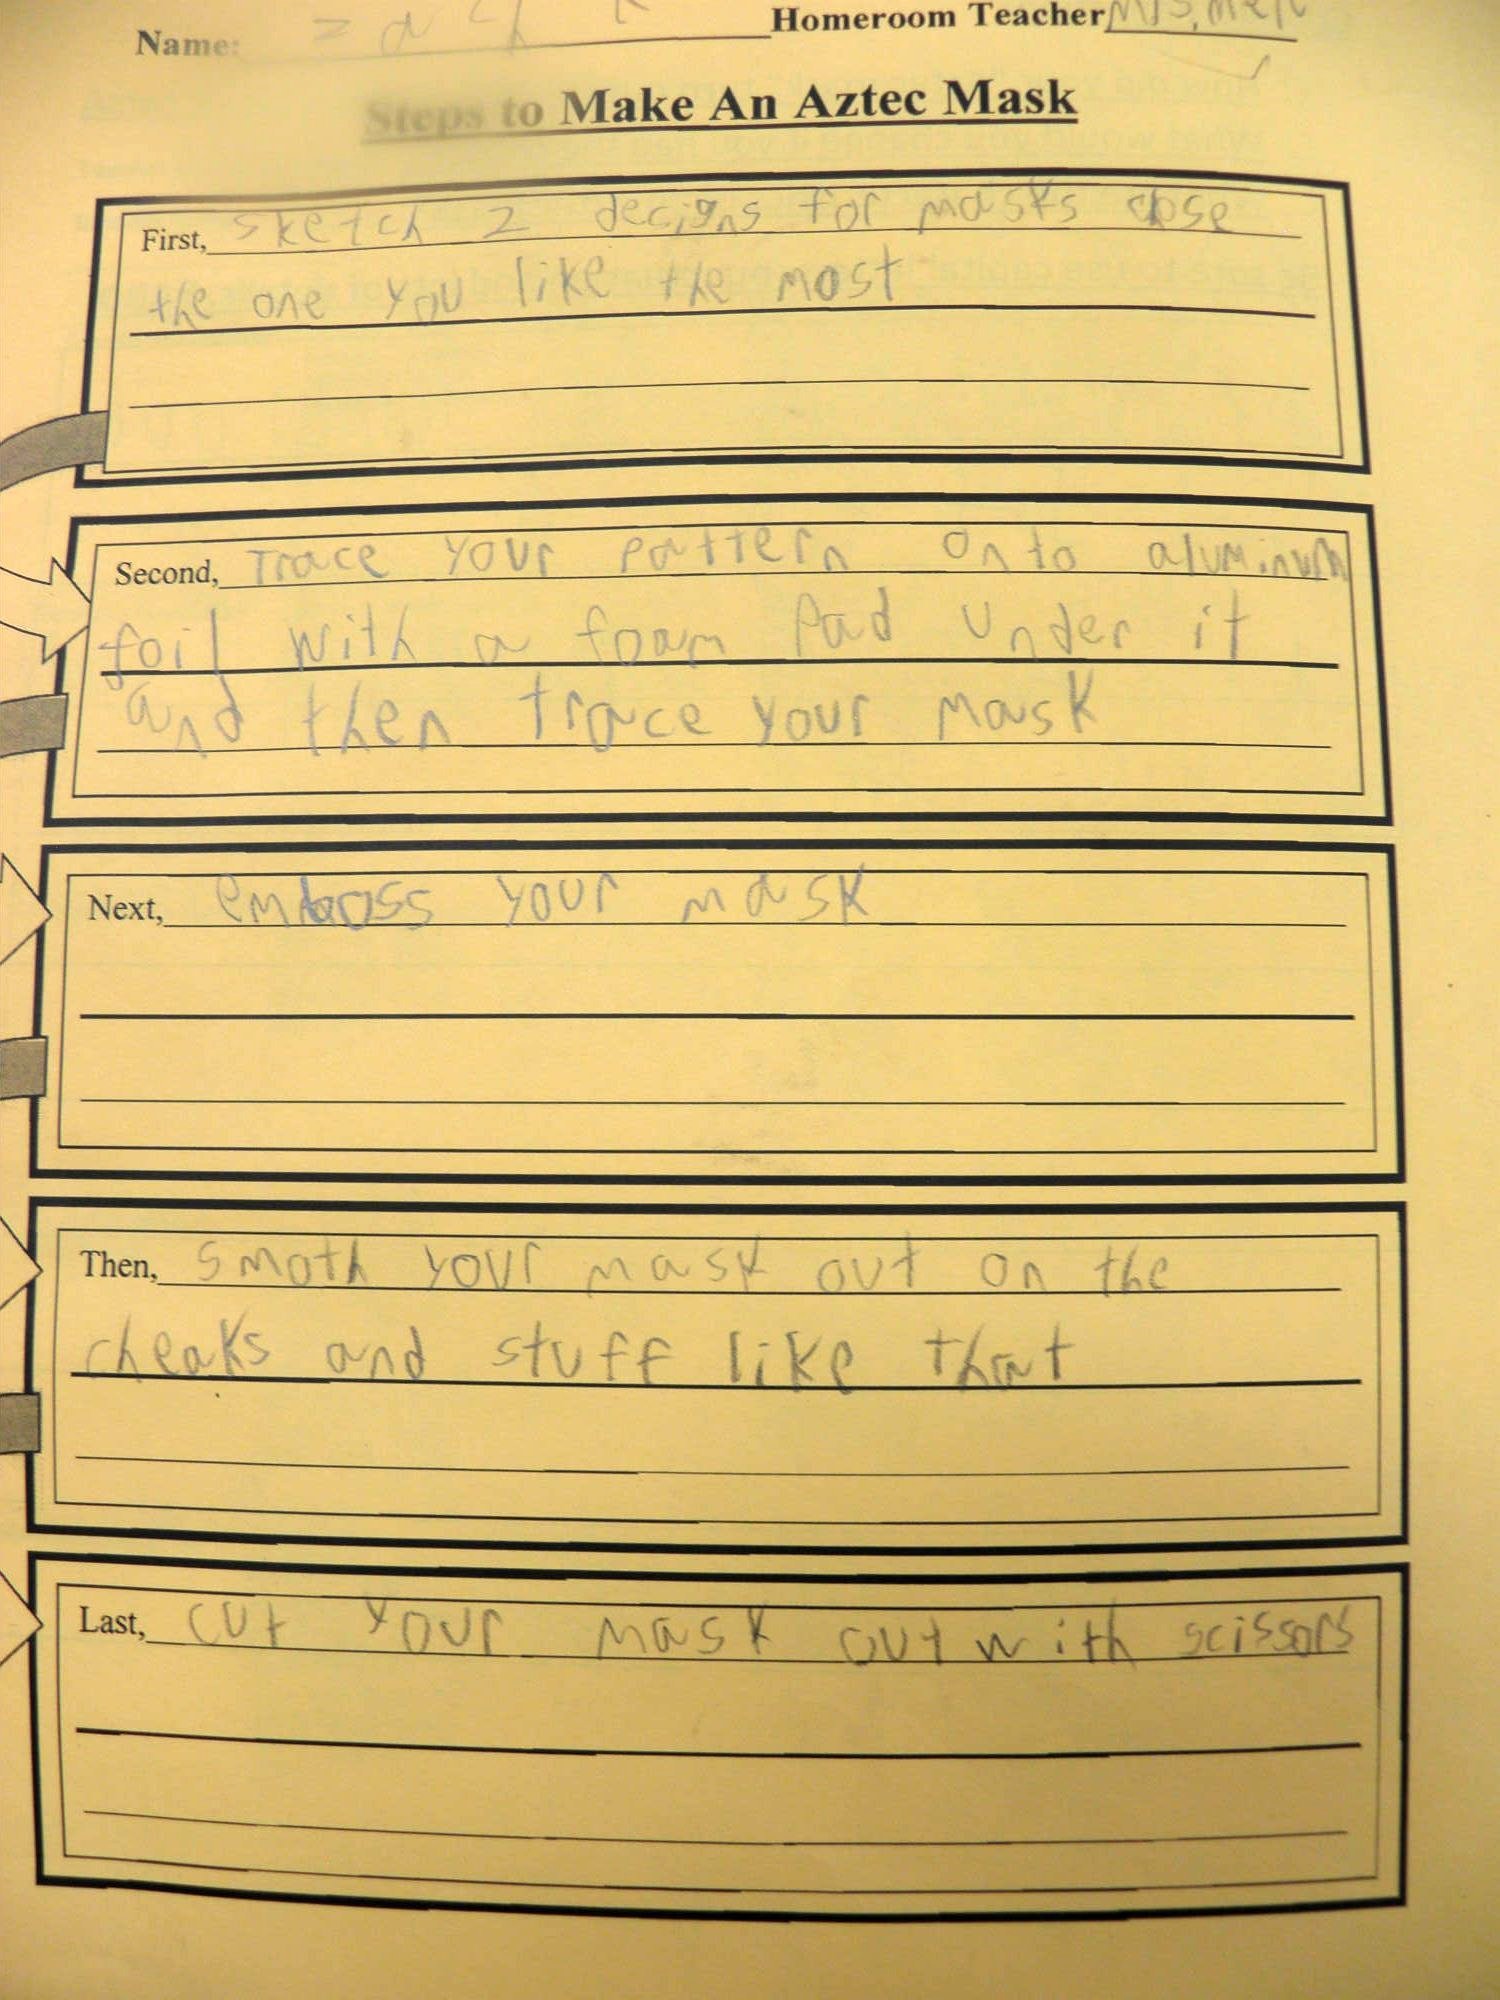 Name: Zach K Homeroom Teacher Mrs.
Steps to Make An Aztec Mask
First, sketch 2 decigns for masks chose
the one you like the most
Second, Trace your pattern onto aluminum
foil with a foam Pad under it
and then trace your mask
Next, emboss your mask
Then, smoth your mask out on the
cheaks and stuff like that
Last, cut your mask out with scissors